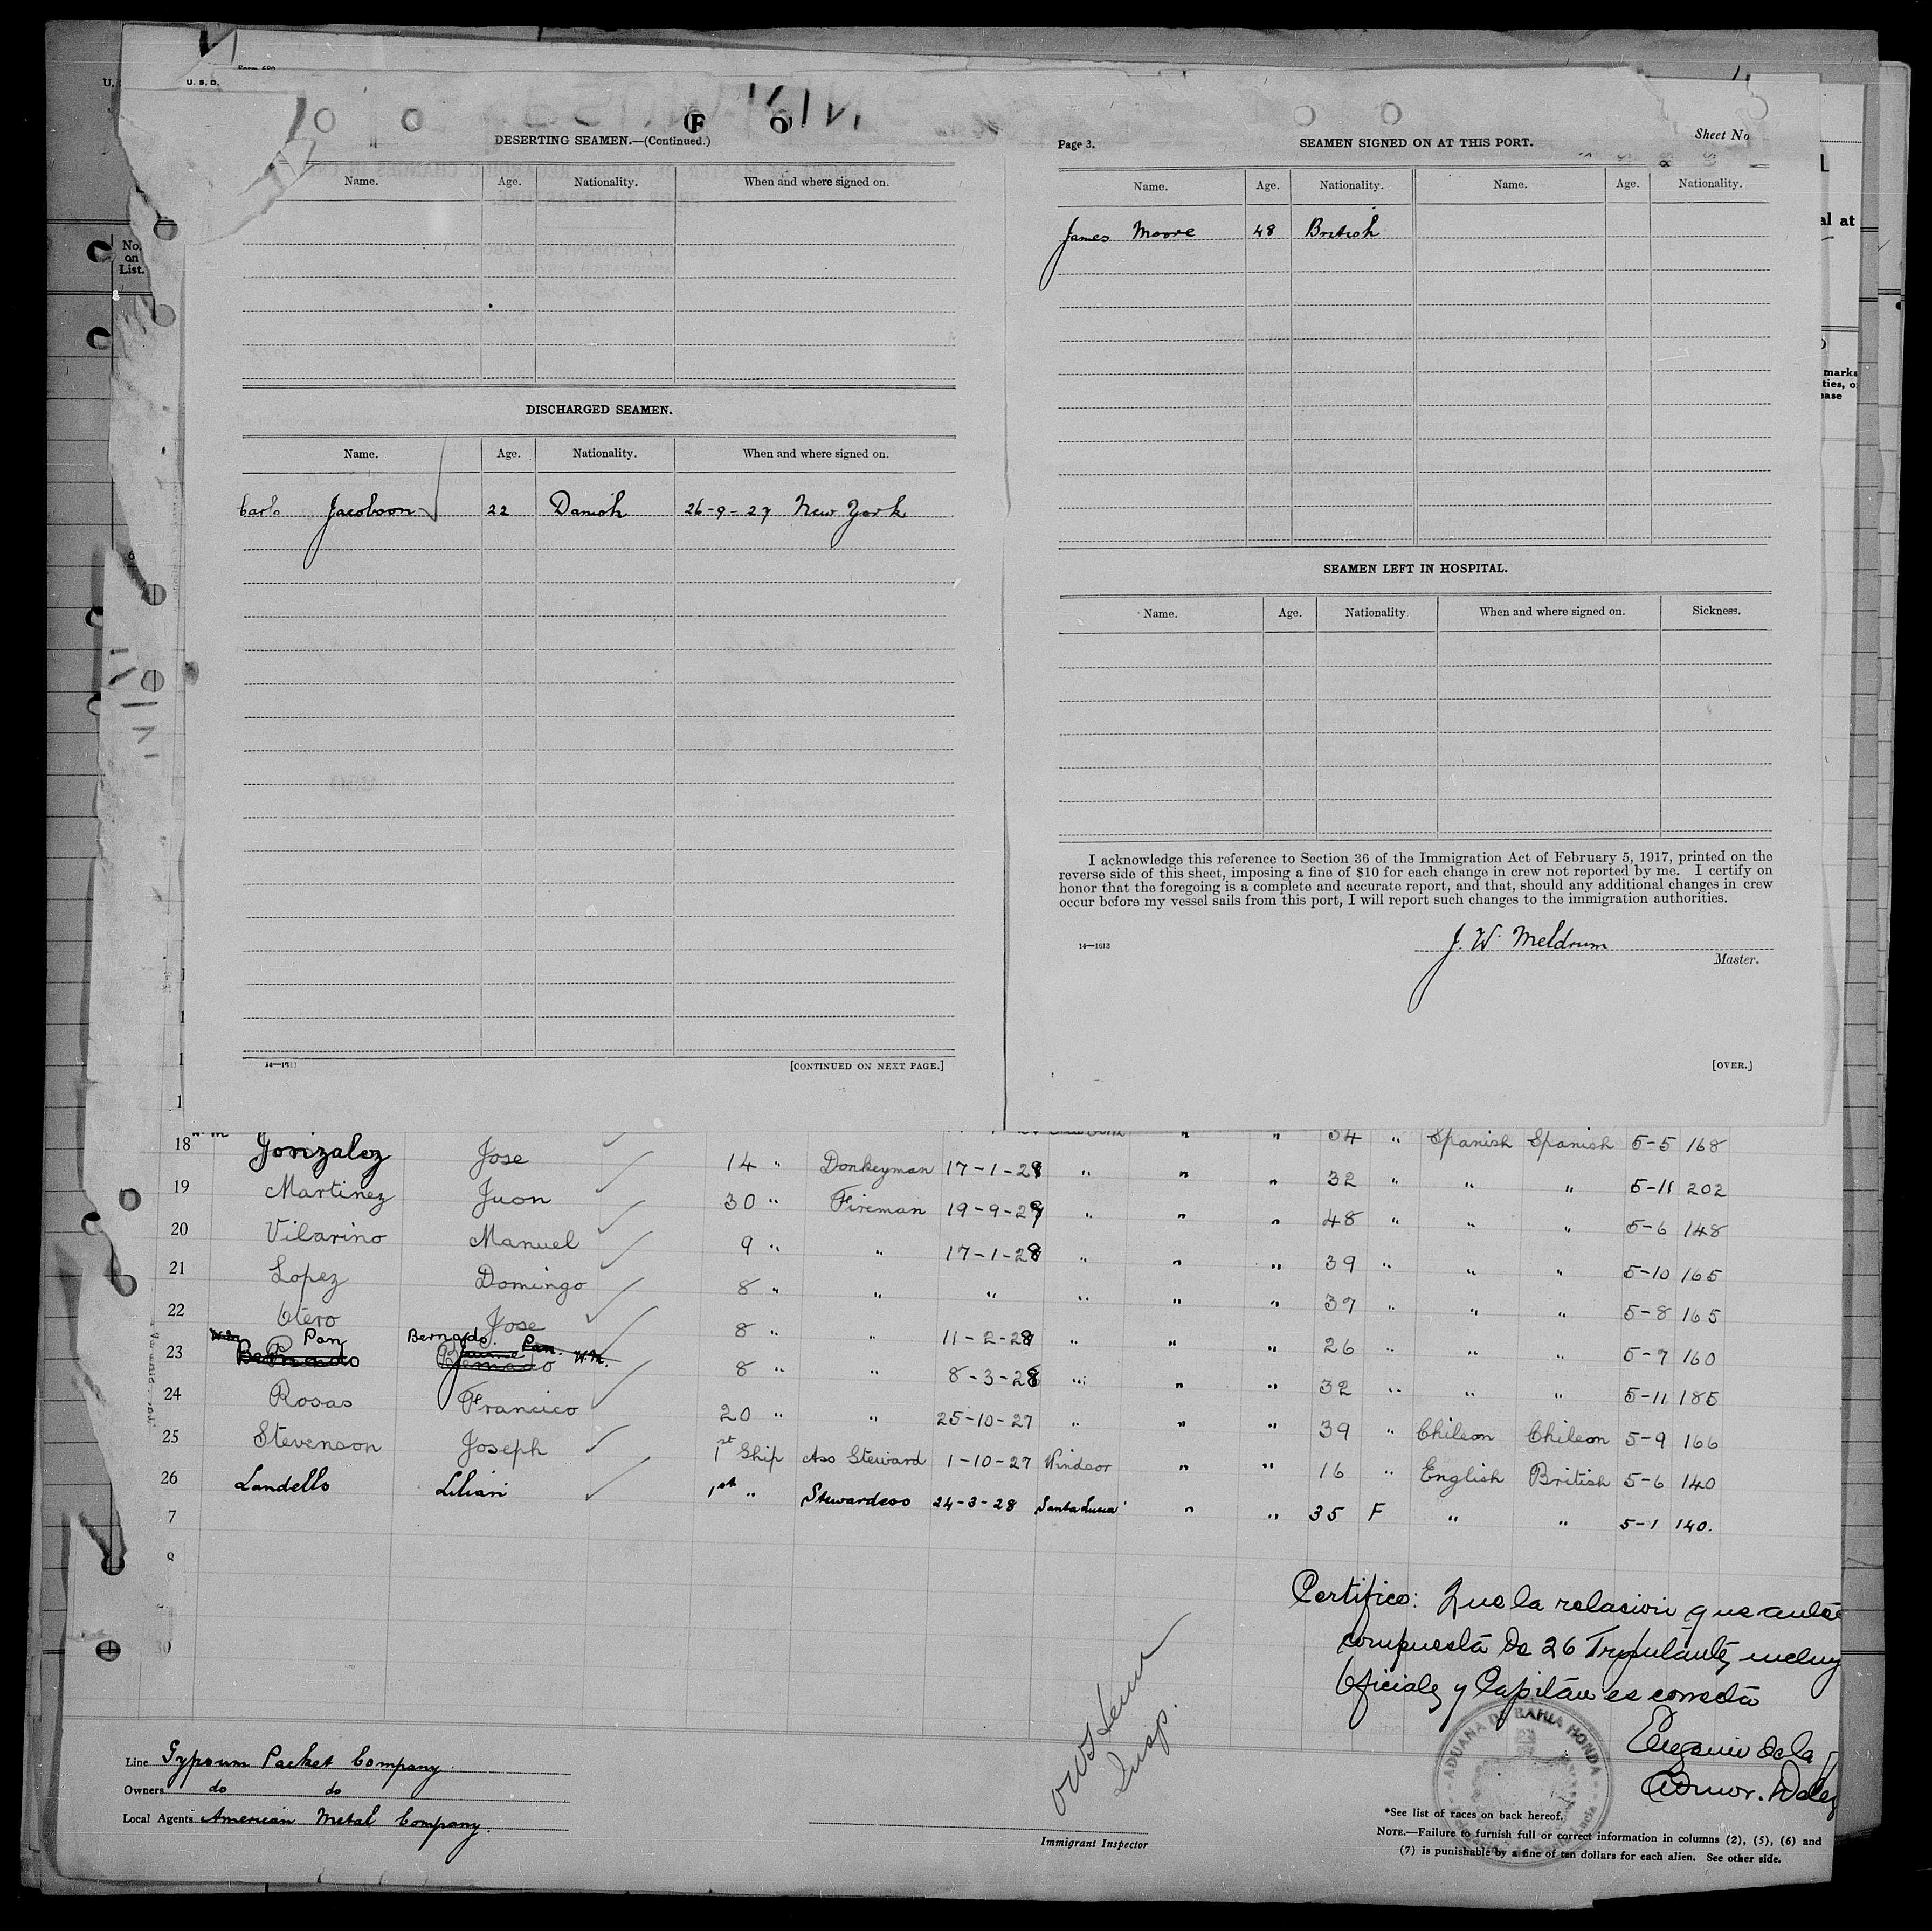 U. S. D.
DESERTING SEAMEN.—(Continued.)
Name. Age. Nationality. When and where signed on.
DISCHARGED SEAMEN.
Name. Age. Nationality. When and where signed on.
Carlo Jacobson 22 Danish 26-9-27 New York
14—1613
[CONTINUED ON NEXT PAGE.]
Sheet No
Page 3. SEAMEN SIGNED ON AT THIS PORT.
Name. Age. Nationality. Name. Age. Nationality.
James Moore 48 British
SEAMEN LEFT IN HOSPITAL.
Name. Age. Nationality When and where signed on. Sickness.
I acknowledge this reference to Section 36 of the Immigration Act of February 5, 1917, printed on the
reverse side of this sheet, imposing a fine of $10 for each change in crew not reported by me. I certify on
honor that the foregoing is a complete and accurate report, and that, should any additional changes in crew
occur before my vessel sails from this port, I will report such changes to the immigration authorities.
14—1613
J. W. Meldrum
Master.
[OVER.]
No. on List.
al at
18 Gonzalez Jose 34 " Spanish Spanish 5-5 168
19 Martinez Juan 14 " Donkeyman 17-1-28 " " " 32 " " " 5-11 202
20 Vilarino Manuel 30 " Fireman 19-9-27 " " " 48 " " " 5-6 148
21 Lopez Domingo 9 " " 17-1-28 " " " 39 " " " 5-10 165
22 Otero Jose 8 " " " " " " 37 " " " 5-8 165
23 Pan Bernado 8 " " 11-2-28 " " " 26 " " " 5-7 160
24 Rosas Francico 8 " " 8-3-28 " " " 32 " " " 5-11 185
25 Stevenson Joseph 20 " " 25-10-27 " " " 39 " Chilean Chilean 5-9 166
26 Landells Lilian 1st Ship Ass Steward 1-10-27 Windsor " " 16 " English British 5-6 140
7 1st " Stewardess 24-3-28 Santa Lucia " " 35 F " " 5-1 140.
30
Certifico: Que la relacion que ante
compuesta de 26 Tripulantes incluy
Oficiales y Capitan es correcta
Eugenio de la
Admor.
ADUANA DE BAHIA HONDA
Insp.
Line Gypsum Packet Company.
Owners do do
Local Agents American Metal Company.
Immigrant Inspector
*See list of races on back hereof.
NOTE.—Failure to furnish full or correct information in columns (2), (5), (6) and
(7) is punishable by a fine of ten dollars for each alien. See other side.